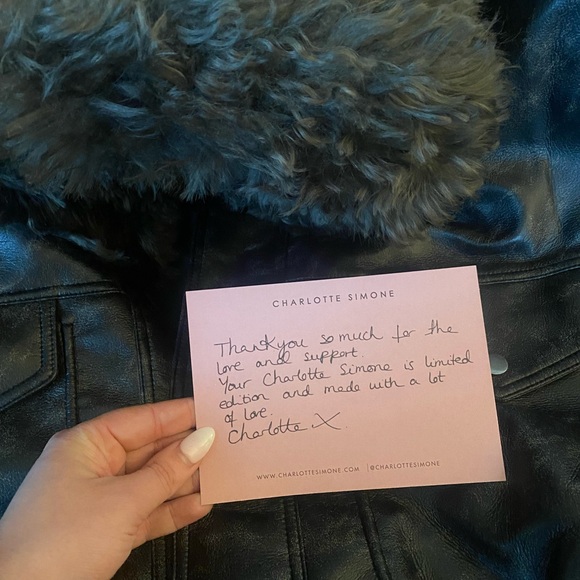 CHARLOTTE SIMONE
Thankyou so much for the
love and support.
Your Charlotte Simone is limited
edition and made with a lot
of love.
Charlotte X.
WWW.CHARLOTTESIMONE.COM | @CHARLOTTESIMONE